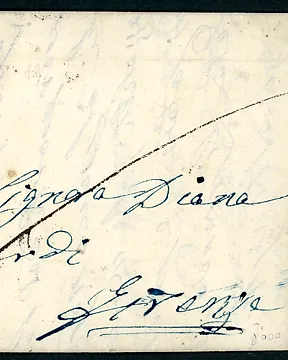 Signora Diana
rdi
Firenze